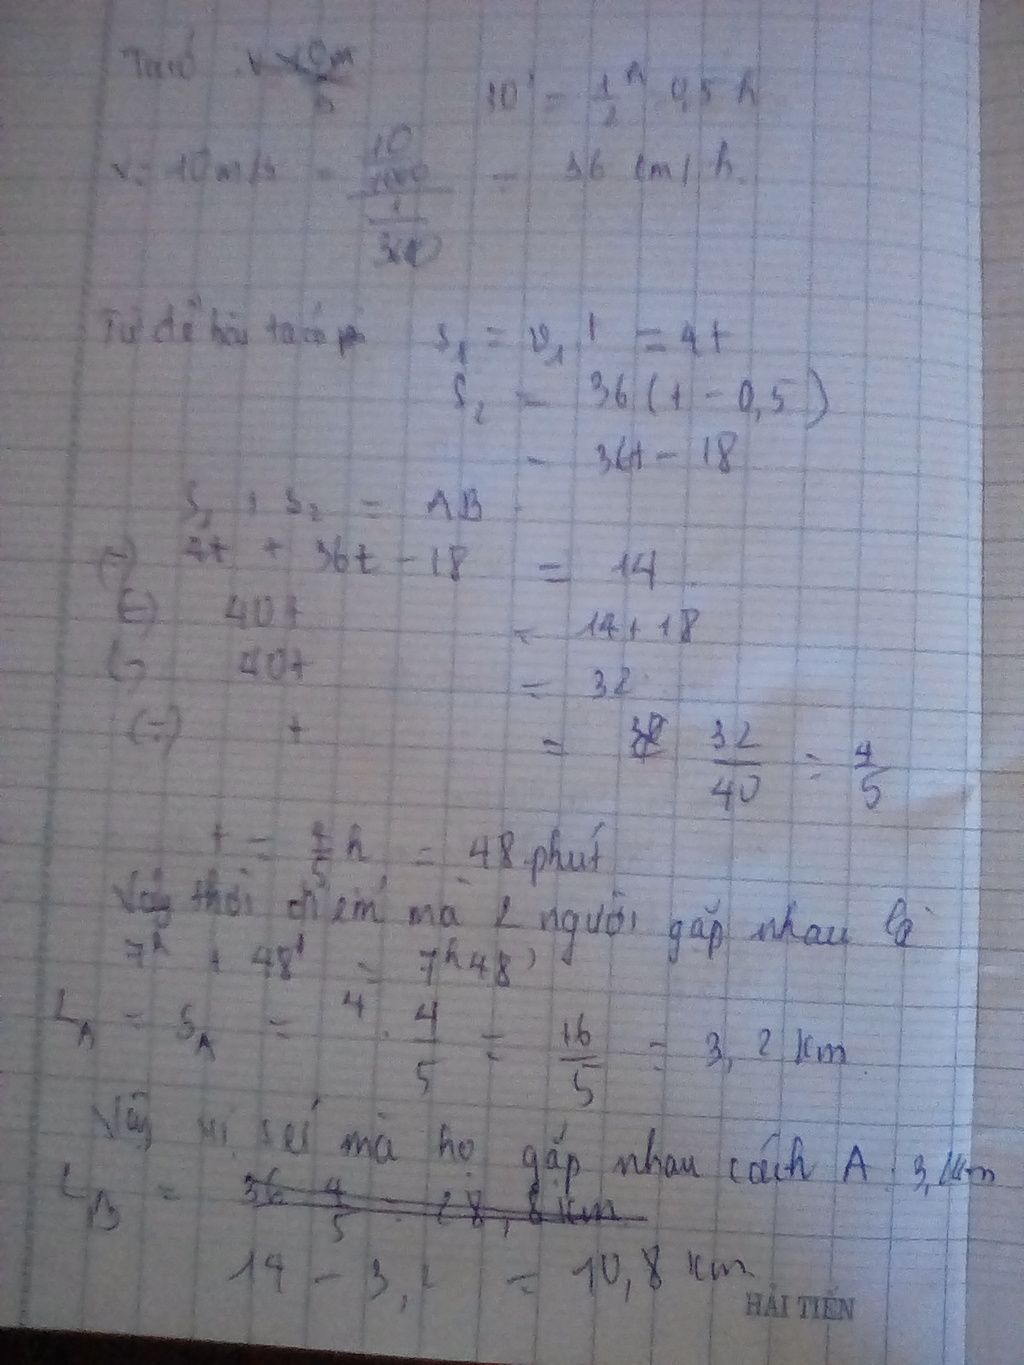 v = 10m/s
30' = 1/2 h 0,5 h
v = 10m/s = (10/1000)/(1/3600) = 36 km/h.
Từ đề bài ta có S₁ = v₁ t = 4t
S₂ = 36(t - 0,5)
= 36t - 18
S₁ + S₂ = AB
(=) 4t + 36t - 18 = 14
(=) 40t = 14 + 18
(=) 40t = 32
(=) t = 32/40 = 4/5
t = 4/5 h = 48 phút
Vậy thời điểm mà 2 người gặp nhau là
7h + 48' = 7h48'
L_A = S_A = 4 . 4/5 = 16/5 = 3,2 km
Vậy vị trí mà họ gặp nhau cách A 3,2km
L_B = 36 4/5 = 28,8 km
14 - 3,2 = 10,8 km
HẢI TIẾN